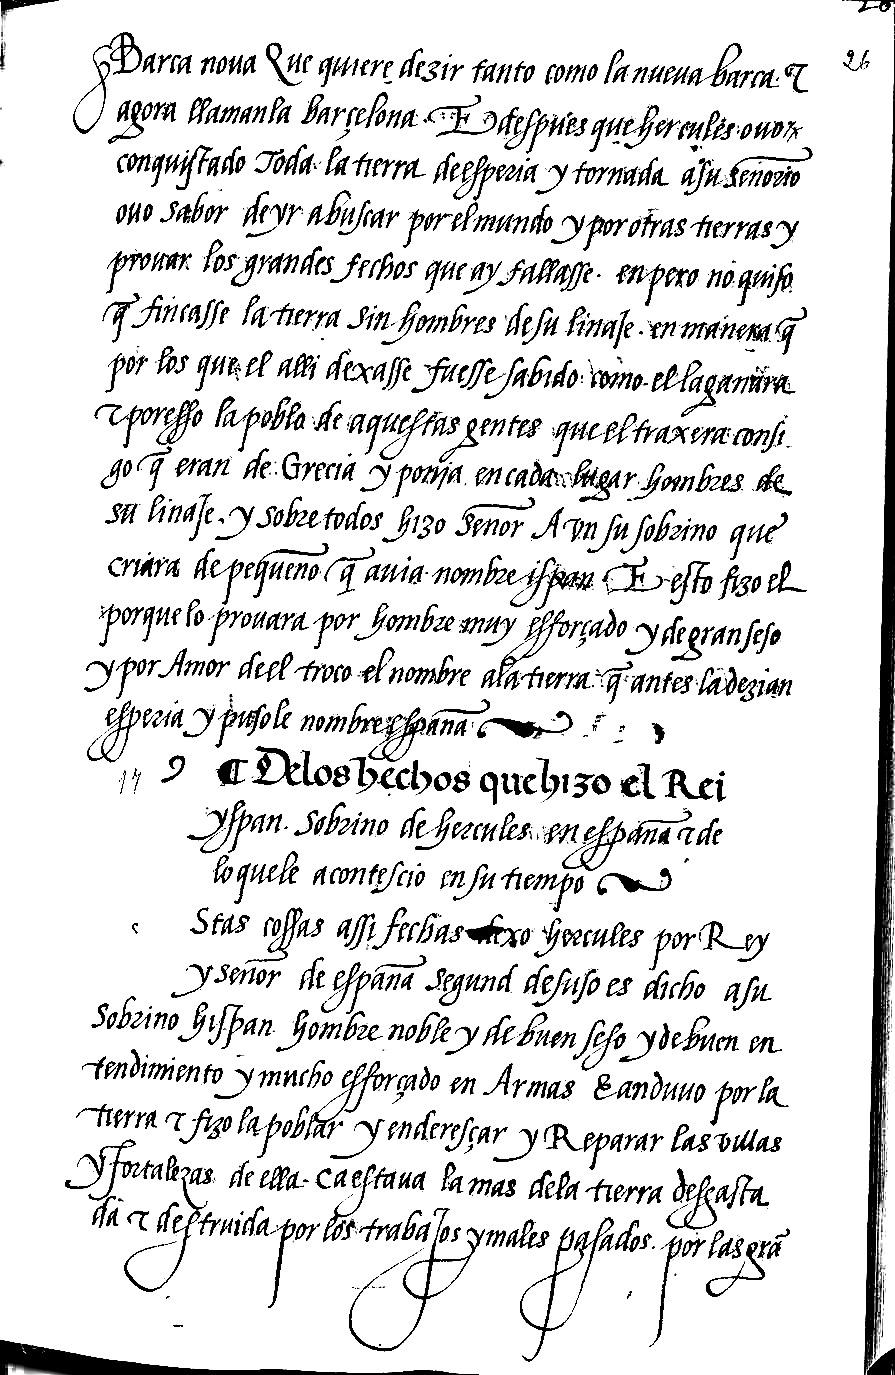 26
Barca noua Que quiere dezir tanto como la nueua barca. ⁊
agora llamanla barçelona. E despues que hercules ouo
conquistado Toda la tierra de esperia y tornada a su señorio
ouo sabor de yr a buscar por el mundo y por otras tierras y
prouar los grandes fechos que ay fallasse. en pero no quiso
q̃ fincasse la tierra sin hombres de su linaje. en manera q̃
por los que el alli dexasse fuesse sabido como el la ganara
⁊ por esso la poblo de aquestas gentes que el traxera consi
go q̃ eran de Grecia y ponia en cada lugar hombres de
su linaje. y sobre todos hizo señor A vn su sobrino que
criara de pequeño q̃ auia nombre ispan E esto fizo el
porque lo prouara por hombre muy esforçado y de gran seso
y por Amor de el troco el nombre a la tierra q̃ antes la dezian
esperia y pusole nombre españa
17 ¶ De los hechos que hizo el Rei
yspan. Sobrino de hercules en españa ⁊ de
lo que le acontescio en su tiempo
Stas cossas assi fechas dexo hercules por Rey
y señor de españa segund de suso es dicho a su
Sobrino hispan hombre noble y de buen seso y de buen en
tendimiento y mucho esforçado en Armas & anduuo por la
tierra ⁊ fizo la poblar y enderesçar y Reparar las villas
y fortalezas de ella. Ca estaua la mas de la tierra desgasta
da ⁊ destruida por los trabajos y males pasados. por las grã